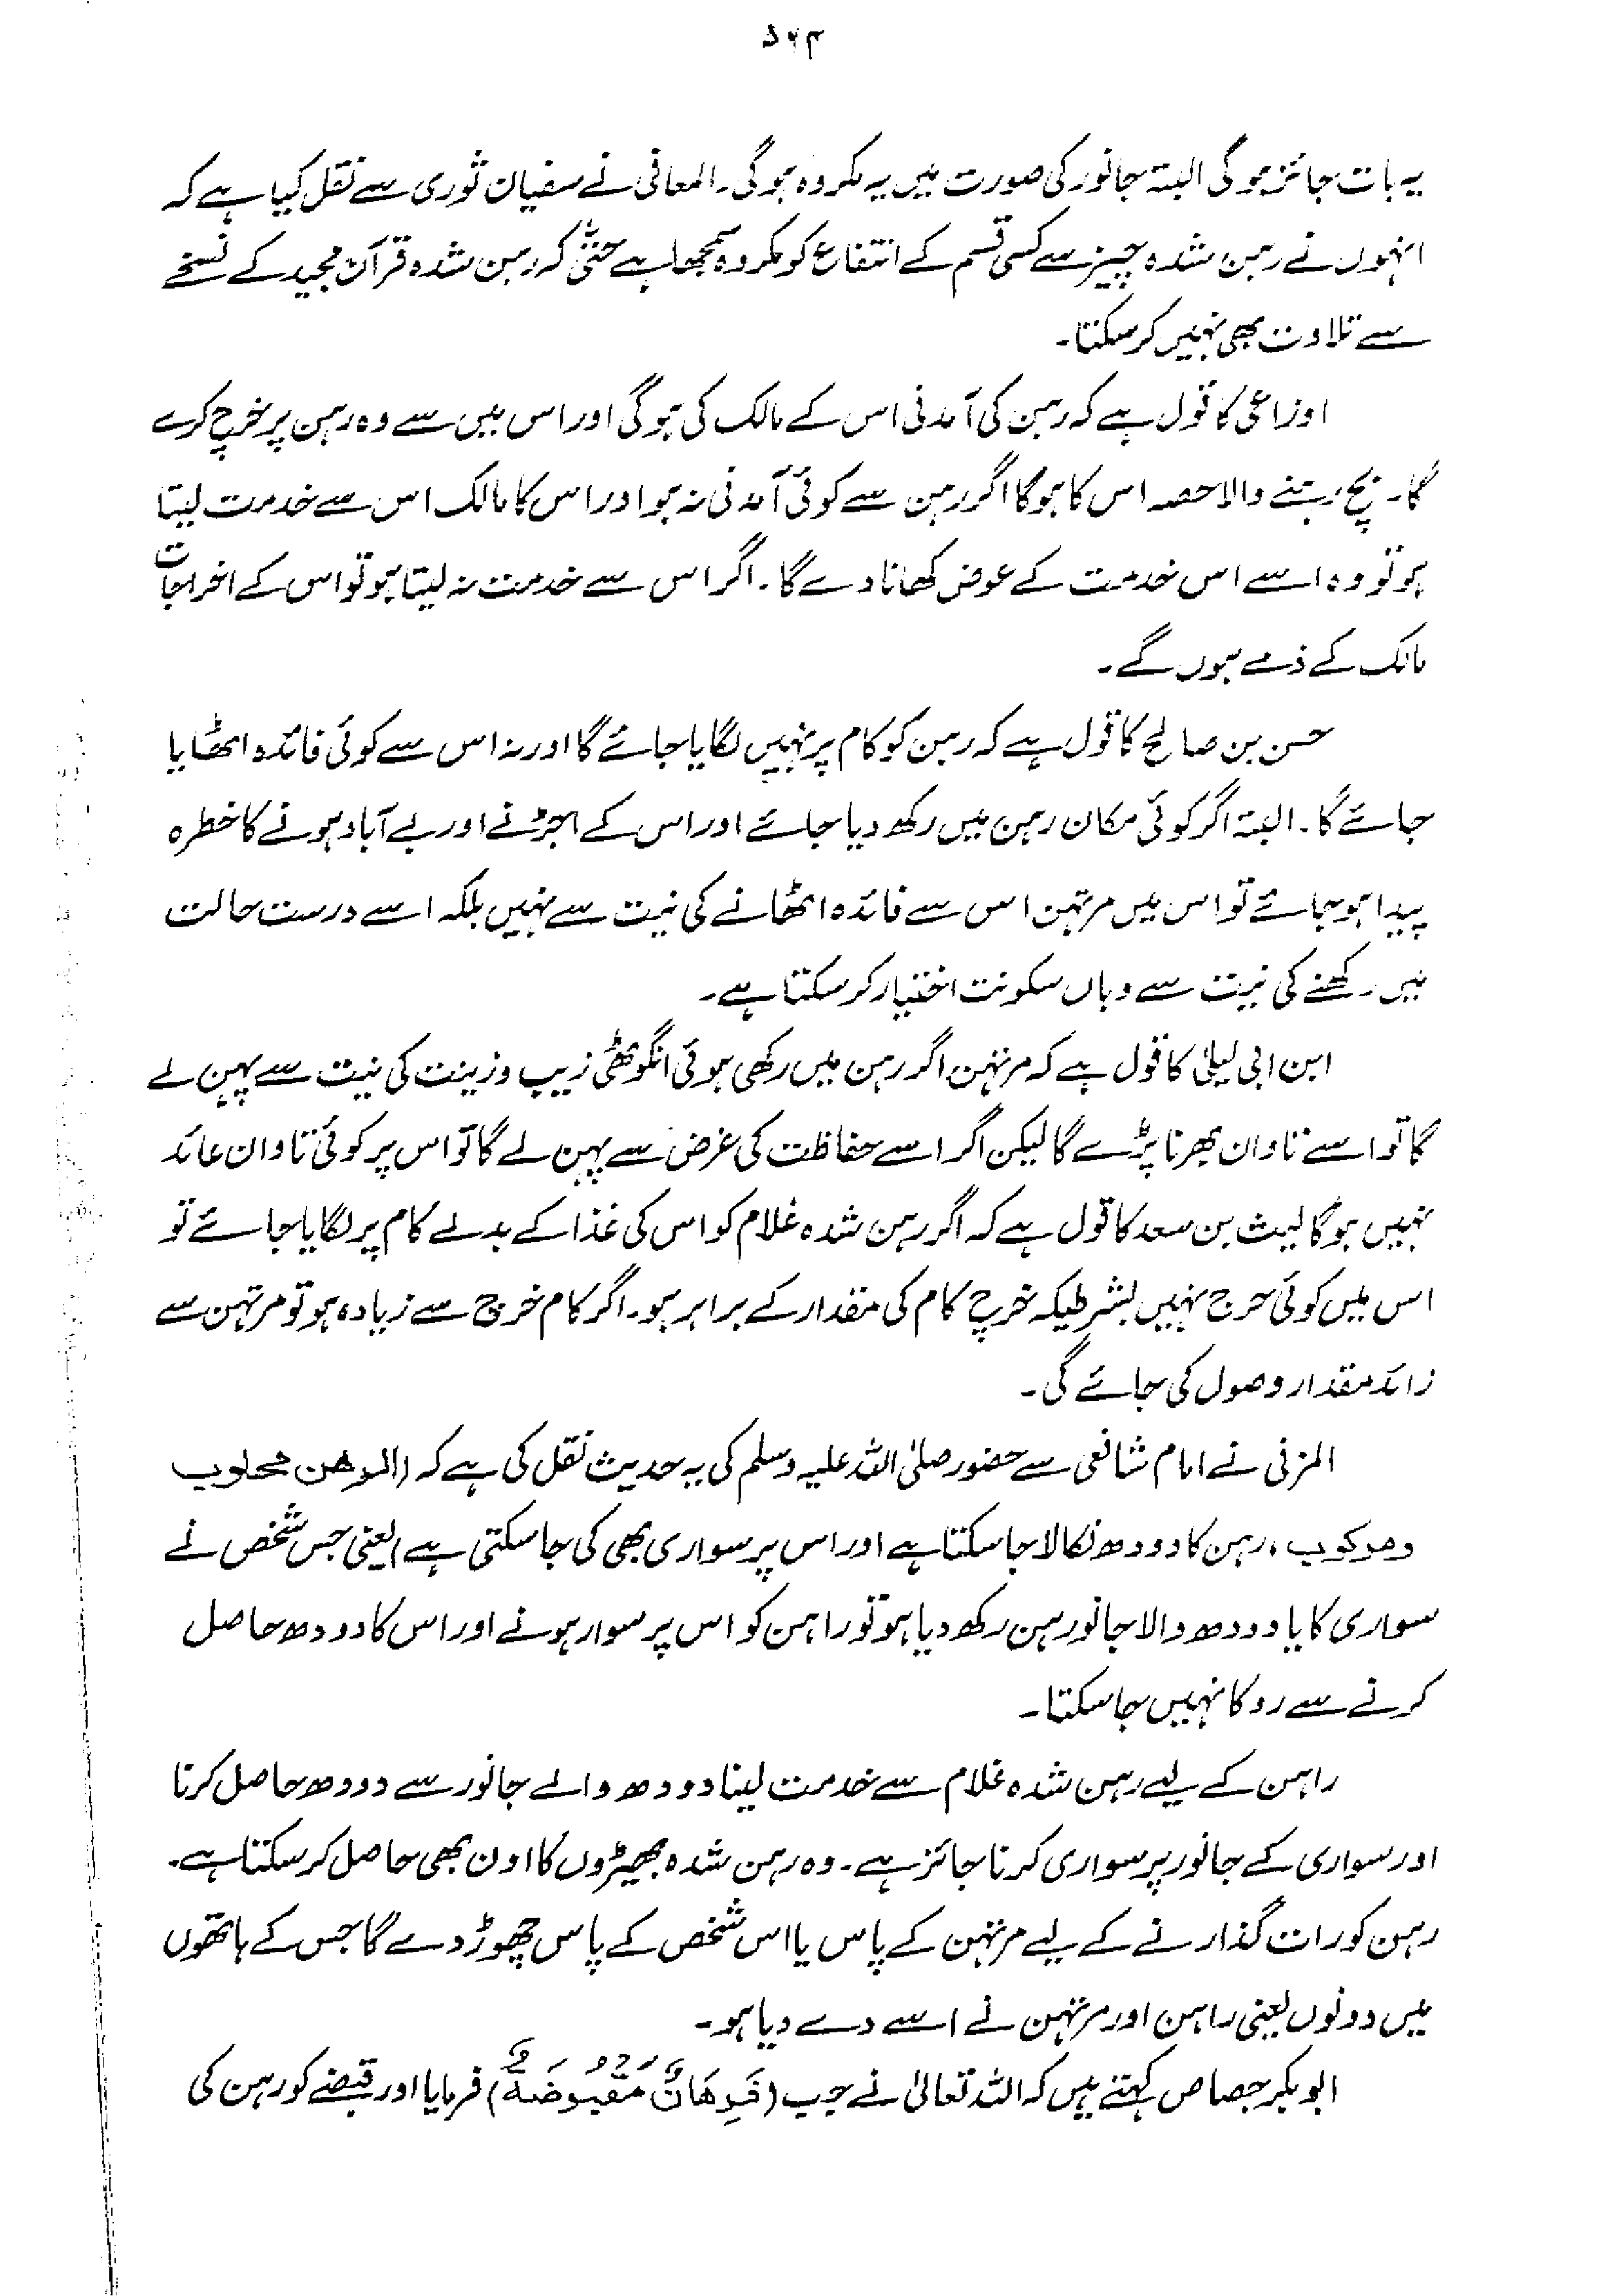 ۵۶۴
یہ بات جائز ہوگی البتہ جانور کی صورت میں یہ مکروہ ہوگی۔ المعافی نے سفیان ثوری سے نقل کیا ہے کہ
انہوں نے رہن شدہ چیز سے کسی قسم کے انتفاع کو مکروہ سمجھا ہے حتیٰ کہ رہن شدہ قرآن مجید کے نسخے
سے تلاوت بھی نہیں کر سکتا۔
اوزاعی کا قول ہے کہ رہن کی آمدنی اس کے مالک کی ہوگی اور اس میں سے وہ رہن پر خرچ کرے
گا۔ بچ رہنے والا حصہ اس کا ہوگا اگر رہن سے کوئی آمدنی نہ ہو اور اس کا مالک اس سے خدمت لیتا
ہو تو وہ اسے اس خدمت کے عوض کھانا دے گا۔ اگر اس سے خدمت نہ لیتا ہو تو اس کے اخراجات
مالک کے ذمے ہوں گے۔
حسن بن صالح کا قول ہے کہ رہن کو کام پر نہیں لگایا جائے گا اور نہ اس سے کوئی فائدہ اٹھایا
جائے گا۔ البتہ اگر کوئی مکان رہن میں رکھ دیا جائے اور اس کے اجڑنے اور بے آباد ہونے کا خطرہ
پیدا ہو جائے تو اس میں مرتہن اس سے فائدہ اٹھانے کی نیت سے نہیں بلکہ اسے درست حالت
میں رکھنے کی نیت سے وہاں سکونت اختیار کر سکتا ہے۔
ابن ابی لیلیٰ کا قول ہے کہ مرتہن اگر رہن میں رکھی ہوئی انگوٹھی زیب و زینت کی نیت سے پہن لے
گا تو اسے تاوان بھرنا پڑے گا لیکن اگر اسے حفاظت کی غرض سے پہن لے گا تو اس پر کوئی تاوان عائد
نہیں ہوگا لیث بن سعد کا قول ہے کہ اگر رہن شدہ غلام کو اس کی غذا کے بدلے کام پر لگایا جائے تو
اس میں کوئی حرج نہیں بشرطیکہ خرچ کام کی مقدار کے برابر ہو۔ اگر کام خرچ سے زیادہ ہو تو مرتہن سے
زائد مقدار وصول کی جائے گی۔
المزنی نے امام شافعی سے حضور صلی اللہ علیہ وسلم کی یہ حدیث نقل کی ہے کہ (الرهن محلوب
ومرکوب، رہن کا دودھ نکالا جا سکتا ہے اور اس پر سواری بھی کی جا سکتی ہے) یعنی جس شخص نے
سواری کا یا دودھ والا جانور رہن رکھ دیا ہو تو راہن کو اس پر سوار ہونے اور اس کا دودھ حاصل
کرنے سے روکا نہیں جا سکتا۔
راہن کے لیے رہن شدہ غلام سے خدمت لینا دودھ والے جانور سے دودھ حاصل کرنا
اور سواری کے جانور پر سواری کرنا جائز ہے۔ وہ رہن شدہ بھیڑوں کا اون بھی حاصل کر سکتا ہے۔
رہن کو رات گذارنے کے لیے مرتہن کے پاس یا اس شخص کے پاس چھوڑ دے گا جس کے ہاتھوں
میں دونوں یعنی راہن اور مرتہن نے اسے دے دیا ہو۔
ابو بکر جصاص کہتے ہیں کہ اللہ تعالیٰ نے جب (فَرِهَانٌ مَقْبُوضَةٌ) فرمایا اور قبضے کو رہن کی